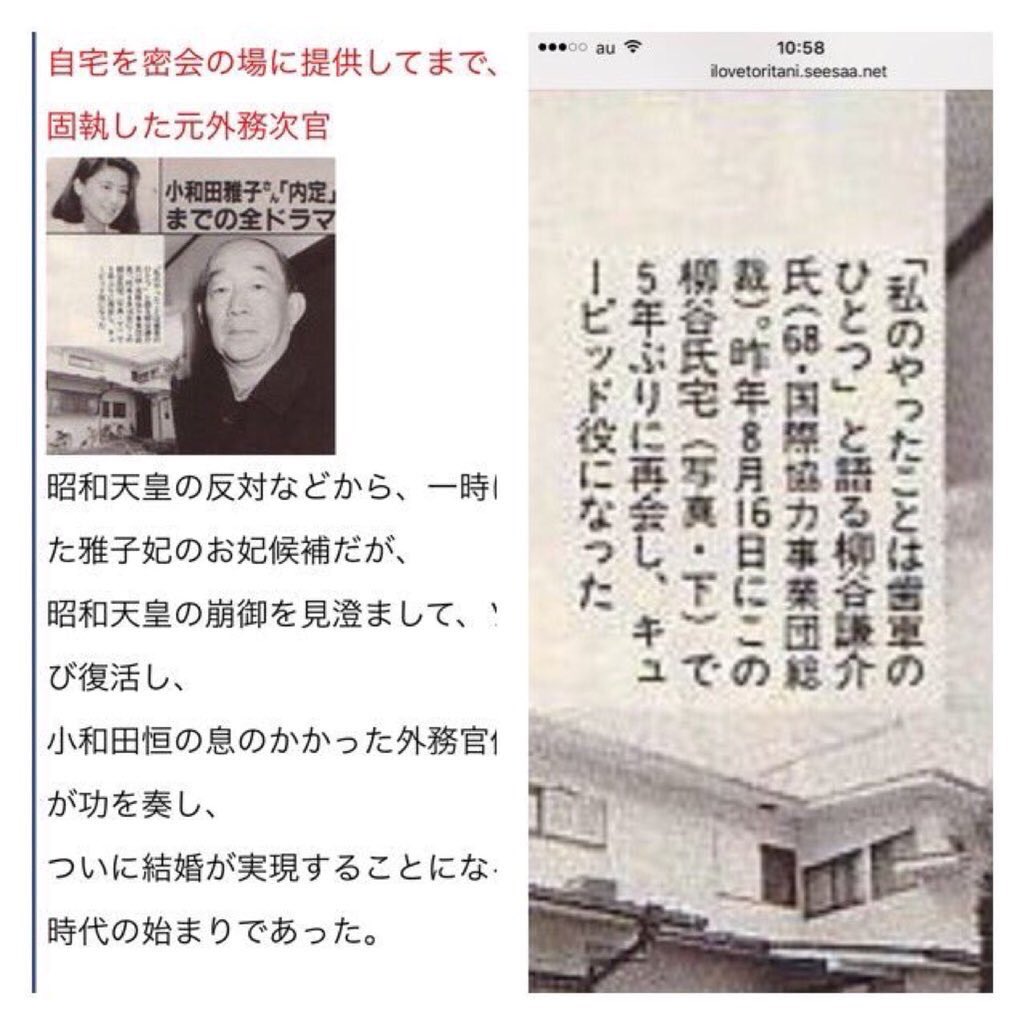 自宅を密会の場に提供してまで、
固執した元外務次官
小和田雅子さん「内定」
までの全ドラマ
昭和天皇の反対などから、一時
た雅子妃のお妃候補だが、
昭和天皇の崩御を見澄まして、
び復活し、
小和田恒の息のかかった外務官
が功を奏し、
ついに結婚が実現することにな
時代の始まりであった。
au
10:58
ilovetoritani.seesaa.net
「私のやったことは歯車の
ひとつ」と語る柳谷謙介
氏(68・国際協力事業団総
裁)。昨年8月16日にこの
柳谷氏宅(写真・下)で
5年ぶりに再会し、キュ
ーピッド役になった